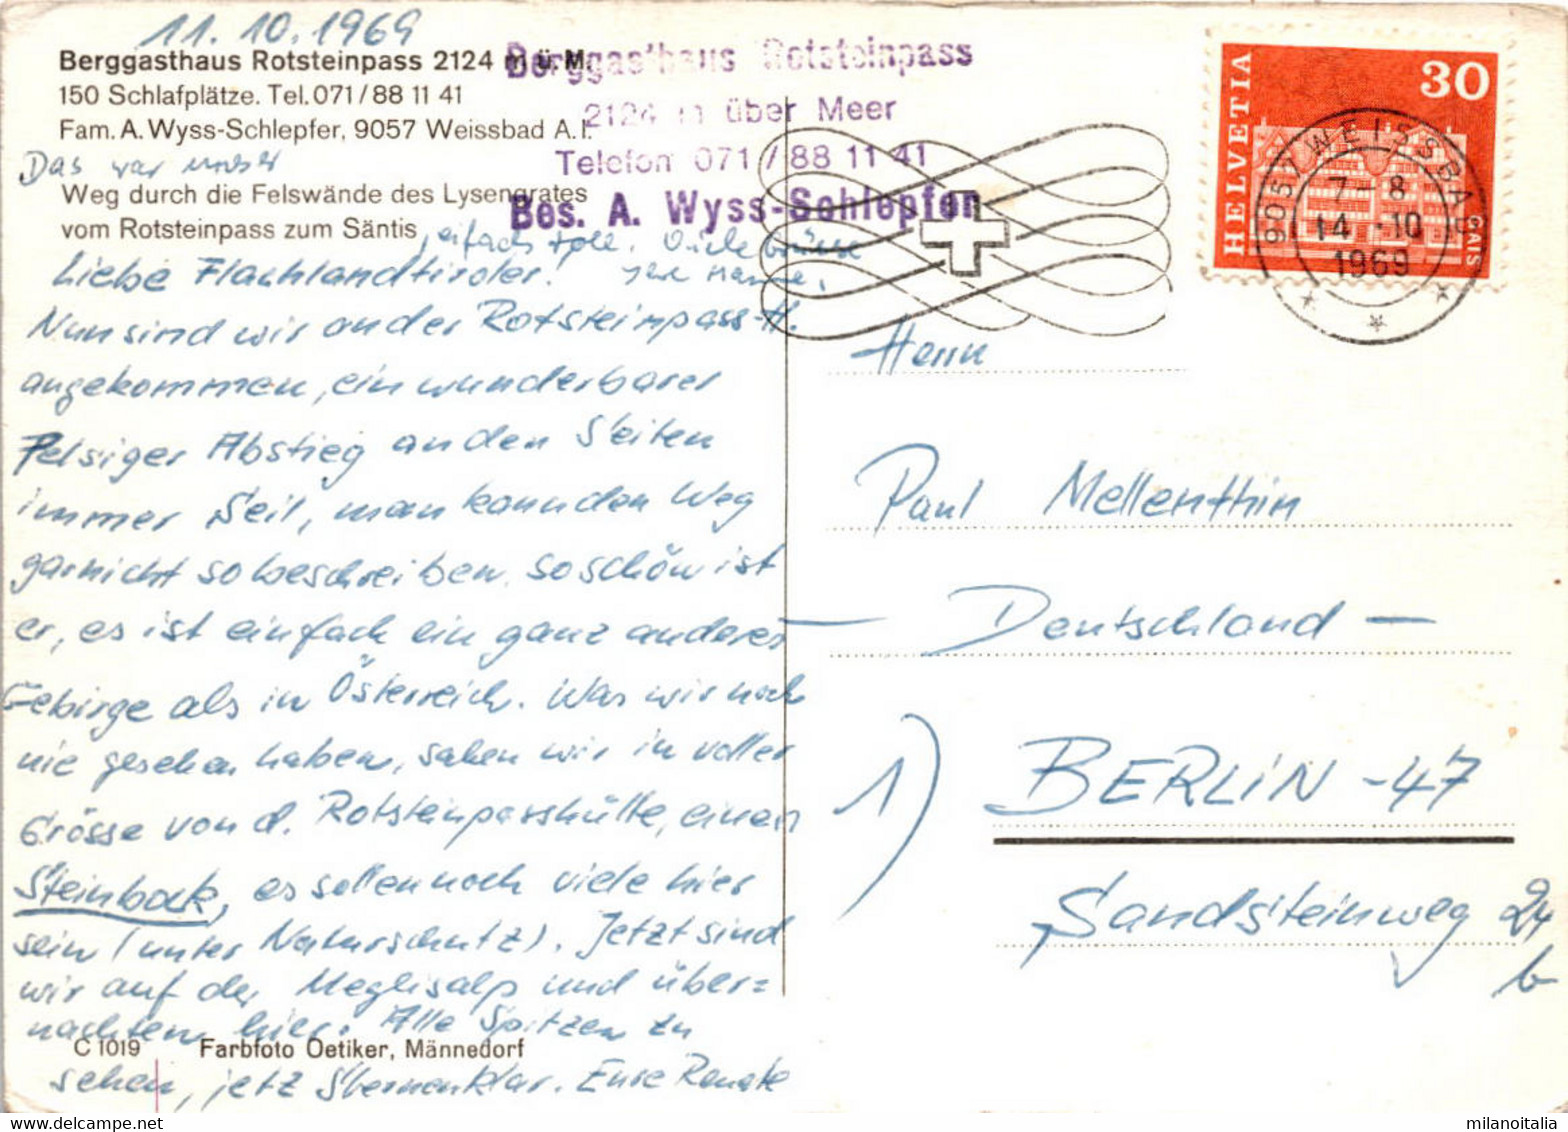 11.10.1969
Berggasthaus Rotsteinpass 2124 m ü. M.
150 Schlafplätze. Tel. 071/88 11 41
Fam. A. Wyss-Schlepfer, 9057 Weissbad A. I.
Das war unser
Weg durch die Felswände des Lysengrates
vom Rotsteinpass zum Säntis
, eifach toll.
Berggasthaus Rotsteinpass
2124 m über Meer
Telefon 071 / 88 11 41
Bes. A. Wyss-Schlepfer
HELVETIA
30
9057 WEISSBAD
GAIS
7-8
14.-10
1969
Liebe Flachlandtiroler!
Nun sind wir an der Rotsteinpass-H.
angekommen, ein wunderbarer
Felsiger Abstieg an den Seiten
immer Seil, man kann den Weg
garnicht so beschreiben, so schön ist
er, es ist einfach ein ganz anderes
Gebirge als in Österreich. Was wir noch
nie gesehen haben, sahen wir in voller
Grösse von d. Rotsteinpasshütte, einen
Steinbock, es sollen noch viele hier
sein (unter Naturschutz). Jetzt sind
wir auf der Meglisalp und über=
nachten hier. Alle Spitzen zu
sehen, jetz Sternenklar. Eure Renate
C 1019 Farbfoto Oetiker, Männedorf
Herrn
Paul Mellenthin
— Deutschland —
1) BERLIN -47
Sandsteinweg 24
b
milanoitalia